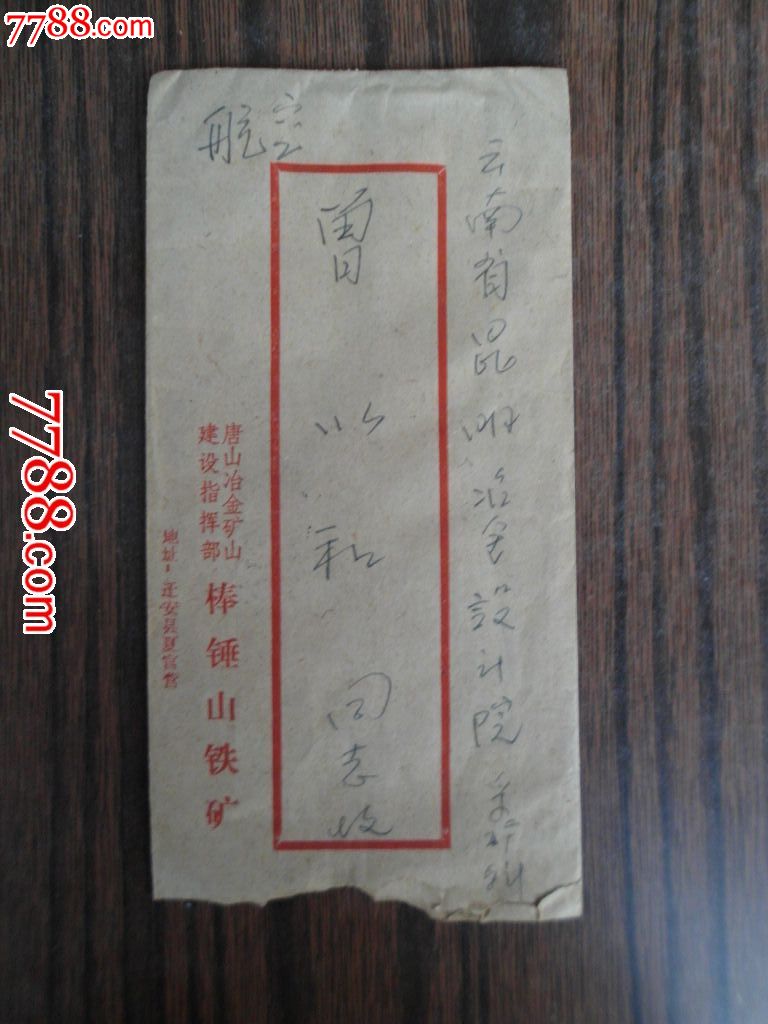 7788.com
航空
云南省昆明冶金設计院采矿科
曹以和同志收
唐山冶金矿山
建设指挥部
棒锤山铁矿
地址：迁安县夏官营
7788.com